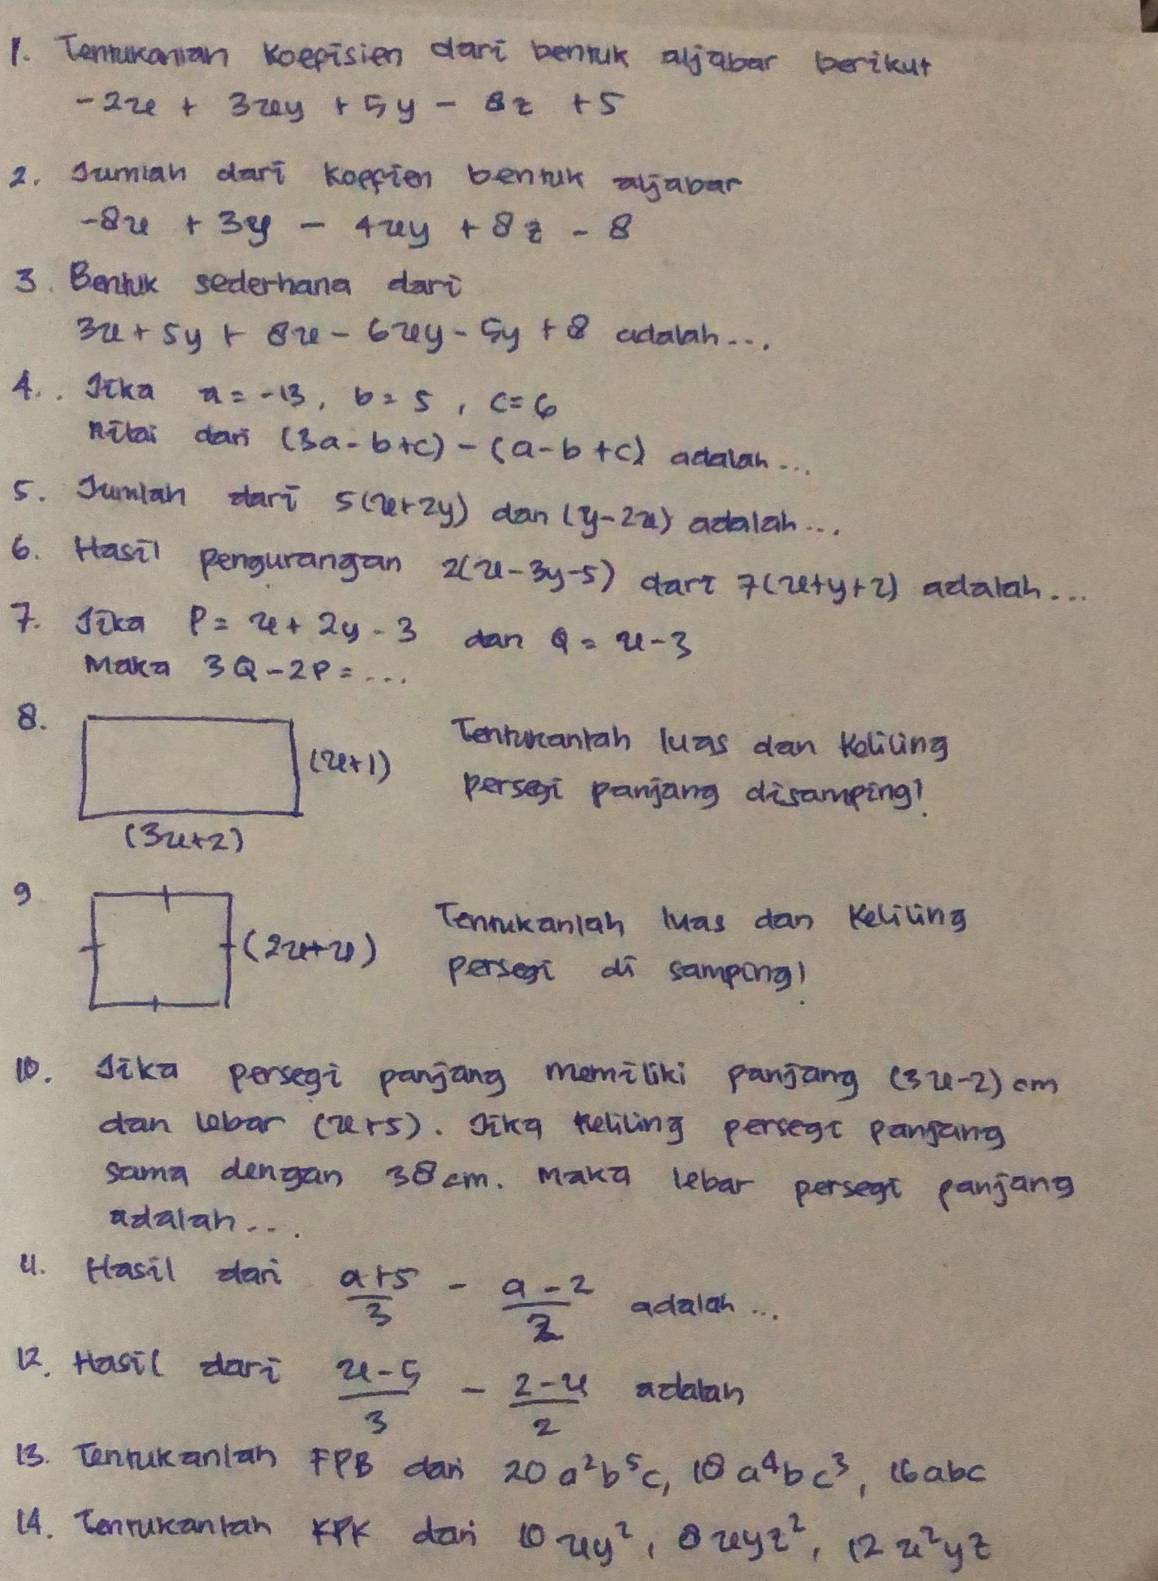 1. Tentukanlah koefisien dari bentuk aljabar berikut
-2x + 3xy + 5y - 8z + 5
2. Jumlah dari koefien bentuk aljabar
-8x + 3y - 4xy + 8z - 8
3. Bentuk sederhana dari
3x + 5y + 8x - 6xy - 5y + 8 adalah ...
4. Jika a = -13, b = 5, c = 6
nilai dari (3a - b + c) - (a - b + c) adalah ...
5. Jumlah dari 5(x + 2y) dan (y - 2x) adalah ...
6. Hasil pengurangan 2(x - 3y - 5) dari 7(x + y + 2) adalah ...
7. Jika P = x + 2y - 3 dan Q = x - 3
Maka 3Q - 2P = ...
8. Tentukanlah luas dan keliling
(x + 1)
persegi panjang disamping!
(3x + 2)
9 Tentukanlah luas dan keliling
(2x + x)
persegi di samping!
10. Jika persegi panjang memiliki panjang (3x - 2) cm
dan lebar (x + 5). Jika keliling persegi panjang
sama dengan 38 cm. Maka lebar persegi panjang
adalah ...
11. Hasil dari a + 5 / 3 - a - 2 / 2 adalah ...
12. Hasil dari x - 5 / 3 - 2 - x / 2 adalah
13. Tentukanlah FPB dari 20a²b⁵c, 18a⁴bc³, 16abc
14. Tentukanlah KPK dari 10xy², 8xyz², 12x²yz